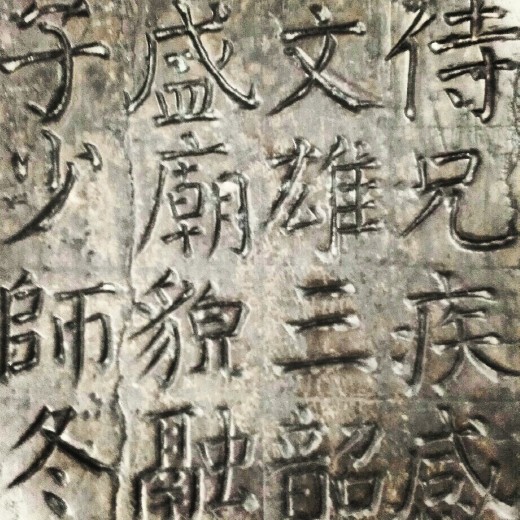 侍兄疾感
文雄三韶
盛廟貌融
子少師冬